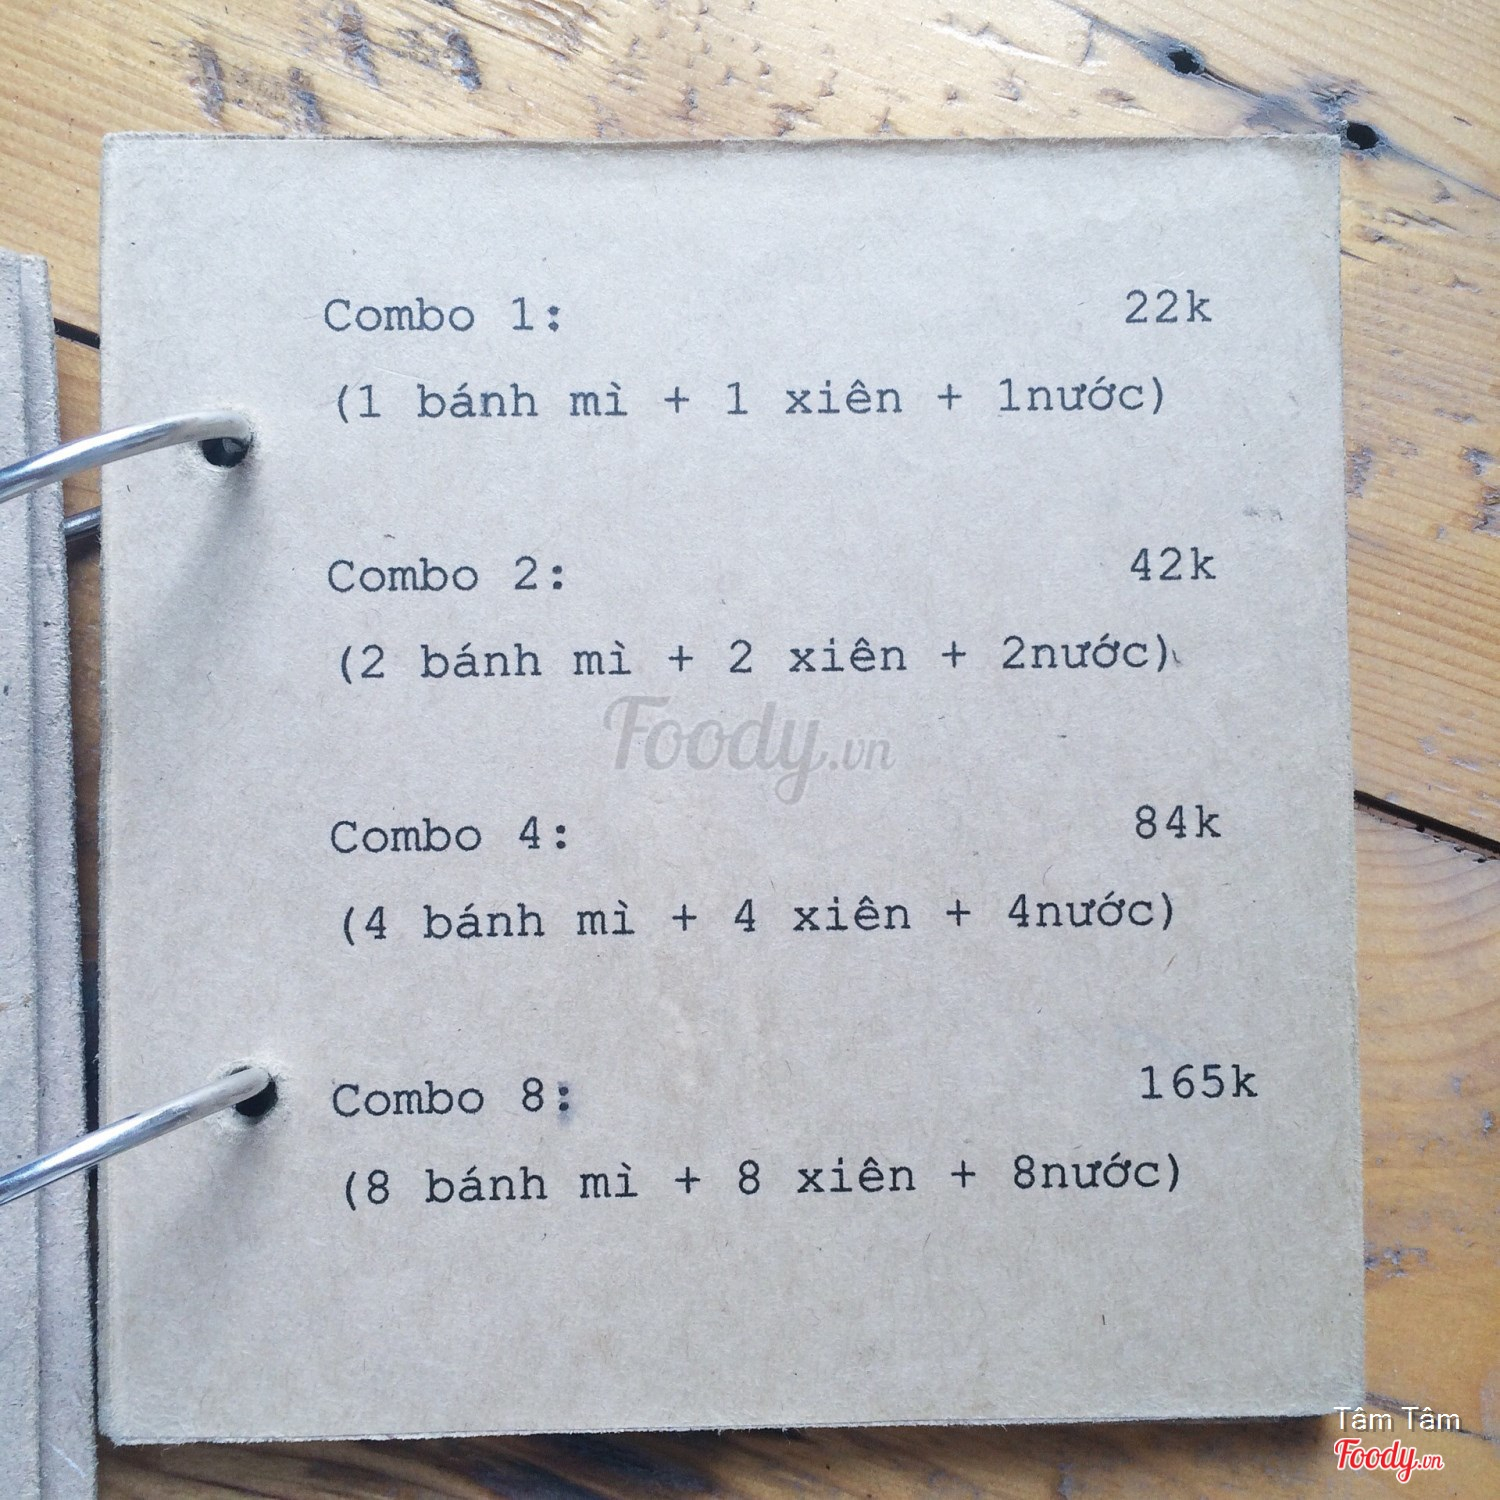 Combo 1: 22k
(1 bánh mì + 1 xiên + 1nước)
Combo 2: 42k
(2 bánh mì + 2 xiên + 2nước)
Foody.vn
Combo 4: 84k
(4 bánh mì + 4 xiên + 4nước)
Combo 8: 165k
(8 bánh mì + 8 xiên + 8nước)
Tâm Tâm
Foody.vn